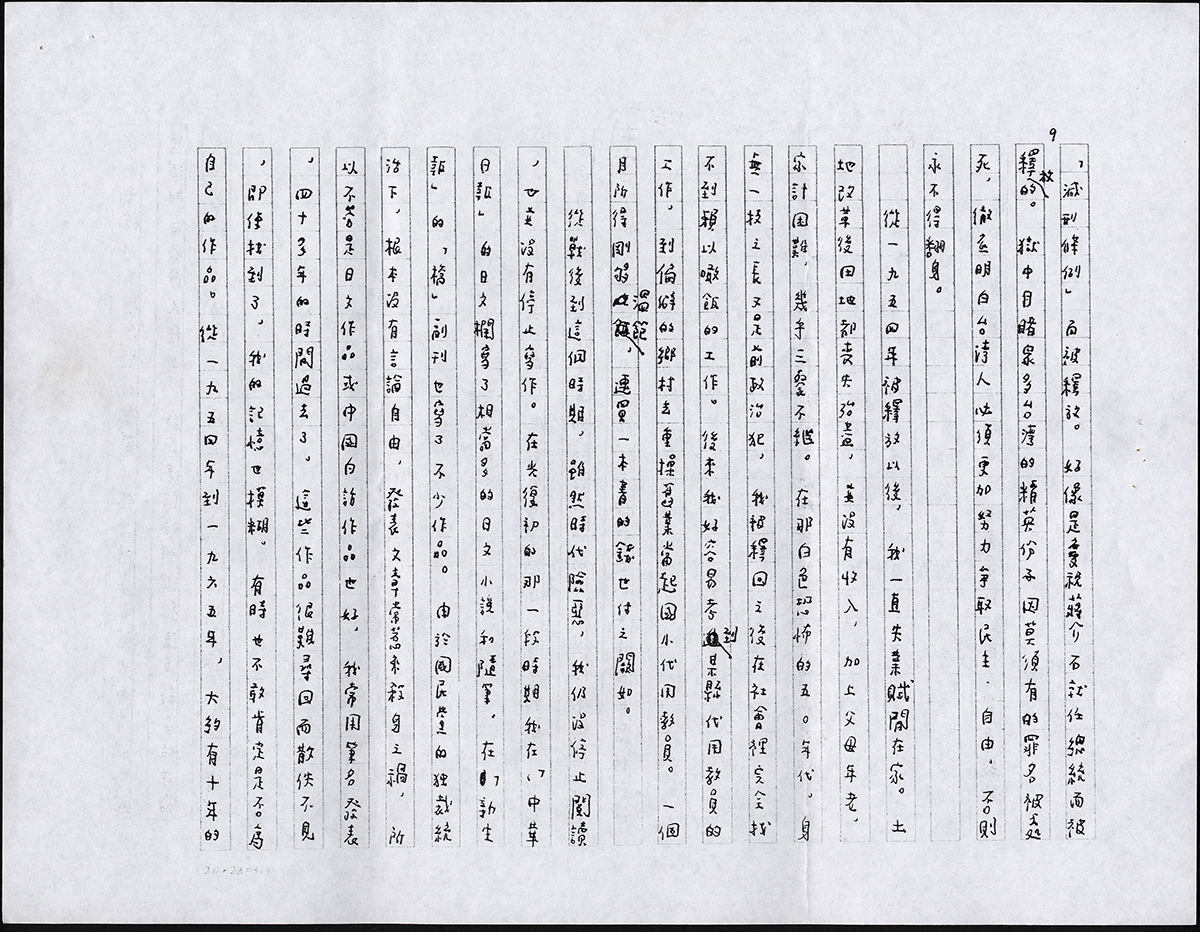 9
，減刑條例」而被釋放。好像是慶祝蔣介石就任總統而被
釋放的。獄中目睹眾多台灣的精英份子因莫須有的罪名被處
死，徹底明白台湾人必須更加努力爭取民主、自由，否則
永不得翻身。
從一九五四年被釋放以後，我一直失業賦閒在家。土
地改革後田地都喪失殆盡，並没有收入，加上父母年老，
家計困難，幾乎三餐不繼。在那白色恐怖的五〇年代，身
無一技之長又是前政治犯，我被釋回之後在社會裡完全找
不到賴以噉飯的工作。後來我好容易考到某縣代用教員的
工作，到偏僻的鄉村去重操舊業當起國小代用教員。一個
月所得剛够溫飽，連買一本書的錢也付之闕如。
從戰後到這個時期，雖然時代險惡，我仍没停止閱讀
，也並没有停止寫作。在光復初的那一段時期我在「中華
日報」的日文欄寫了相當多的日文小說和隨筆，在「新生
報」的「橋」副刊也寫了不少作品。由於國民黨的独裁統
治下，根本没有言論自由，發表文章常惹來殺身之禍，所
以不管是日文作品或中国白話作品也好，我常用筆名發表
，四十多年的時間過去了，這些作品很難尋回而散佚不見
，即使找到了，我的記憶也模糊，有時也不敢肯定是否為
自己的作品。從一九五四年到一九六五年，大約有十年的